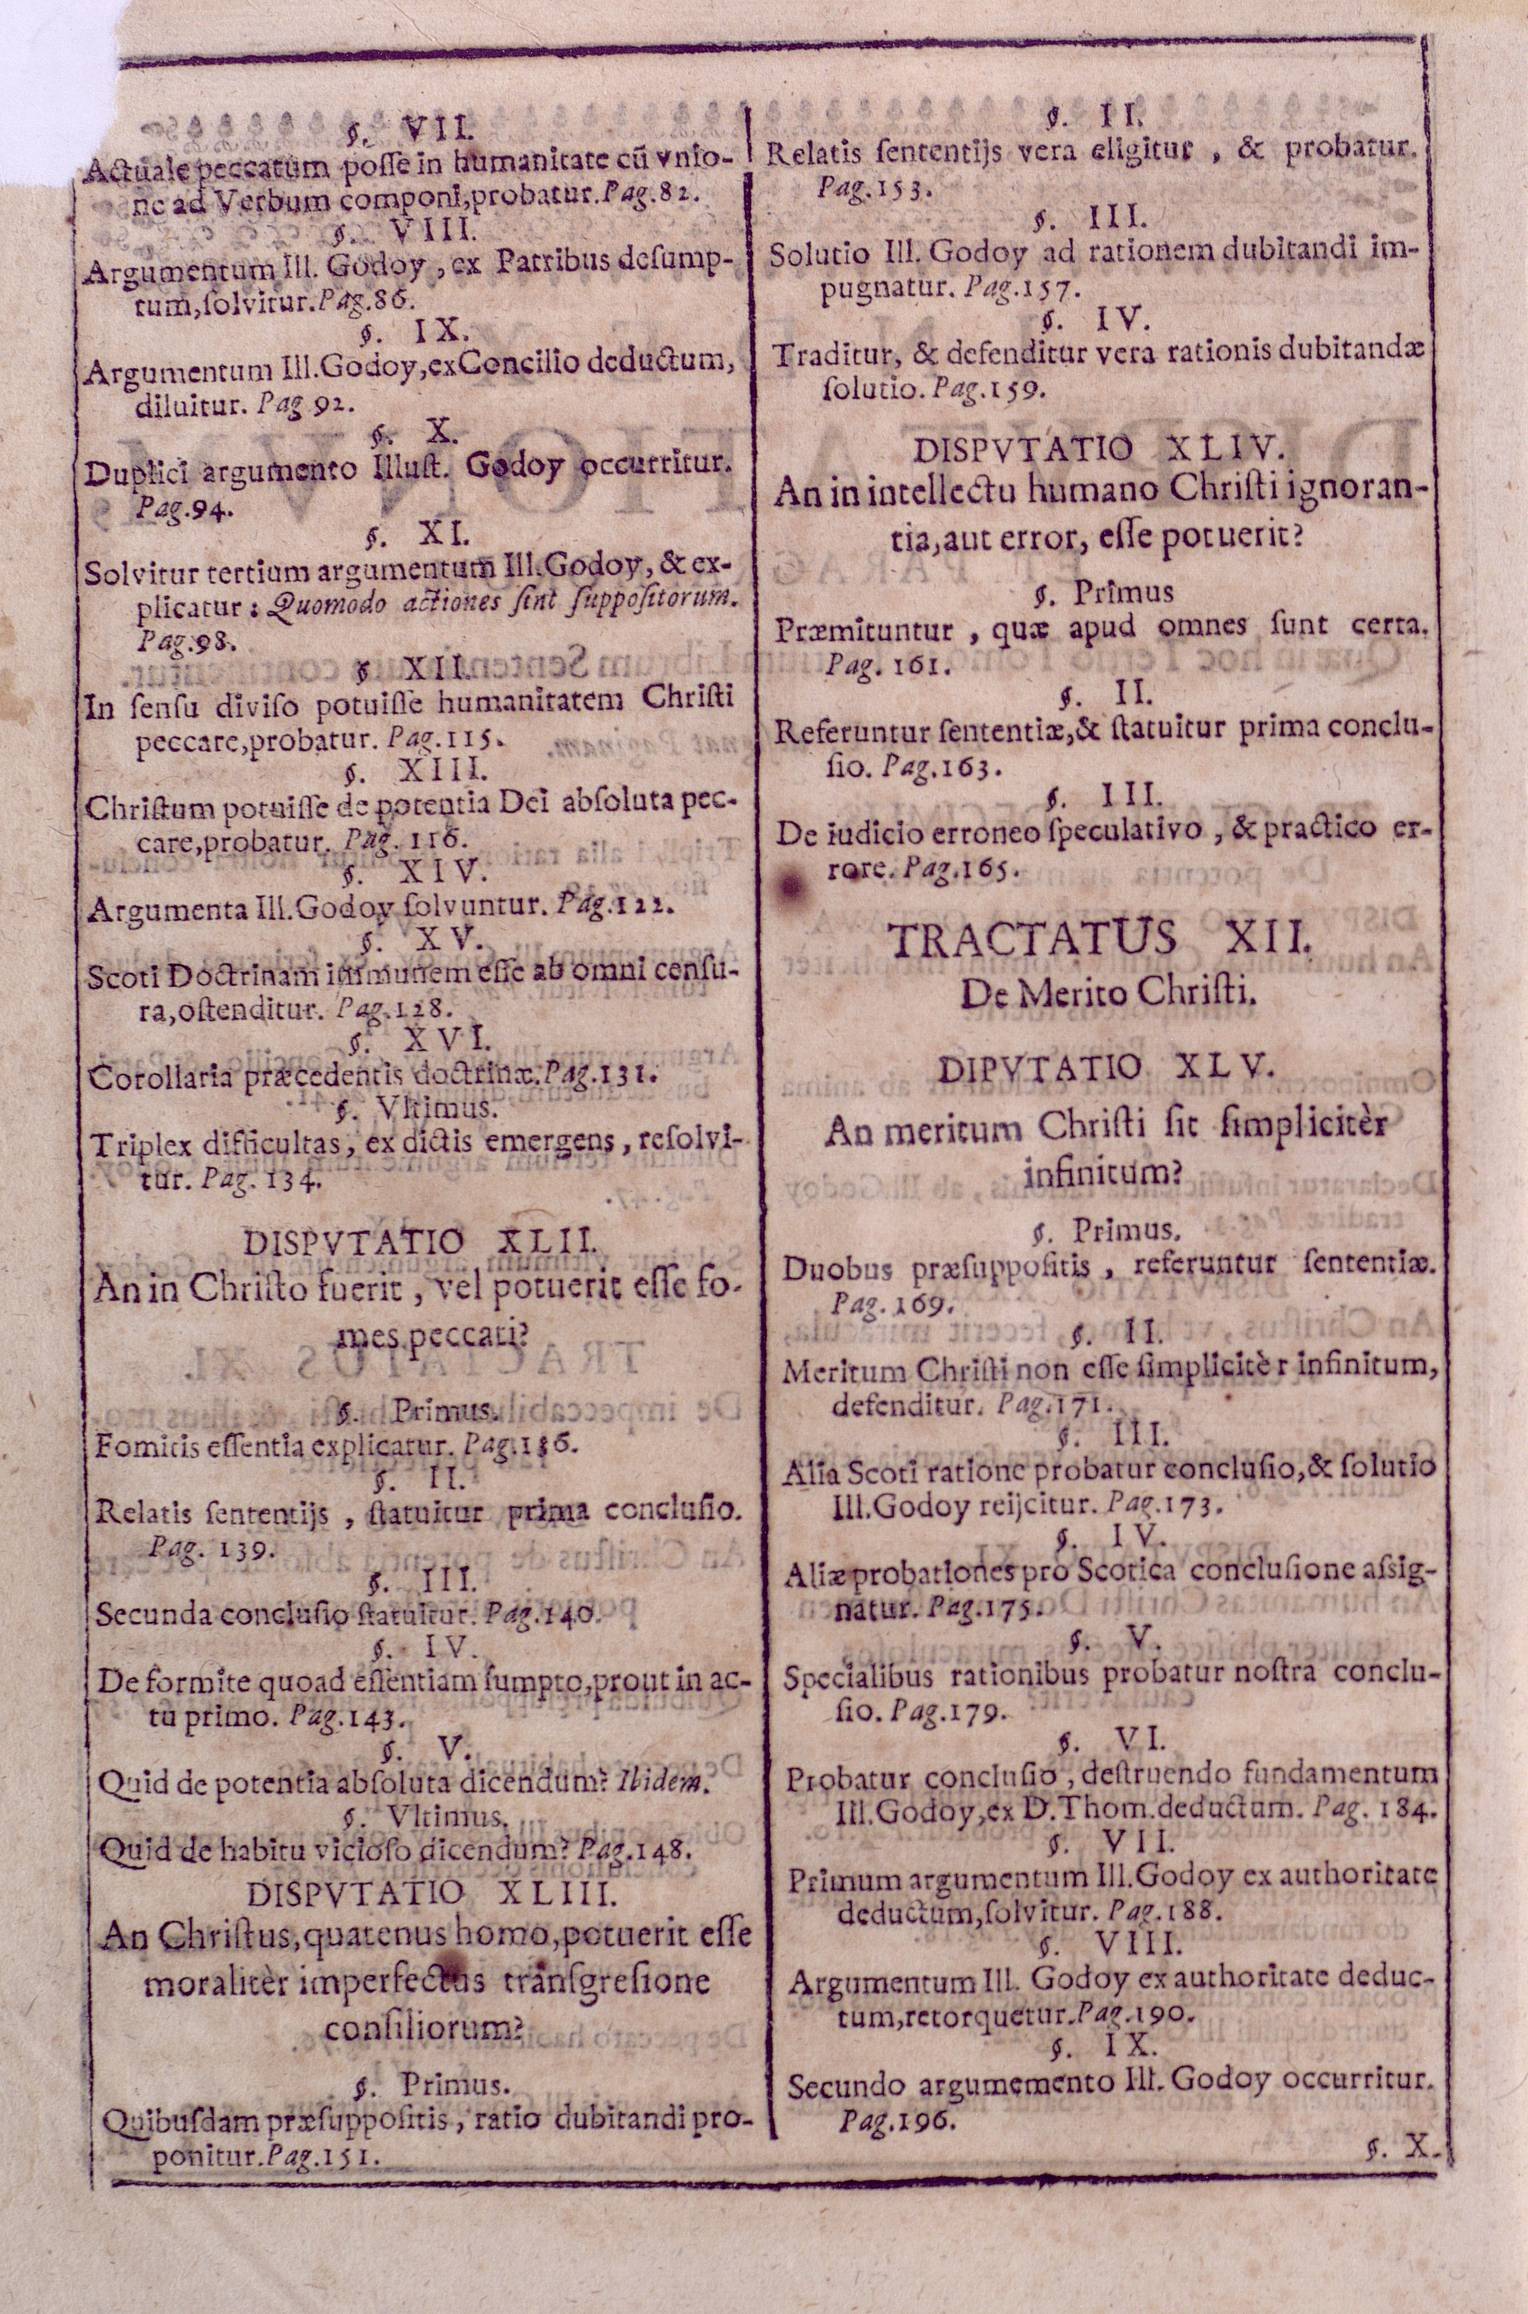 §. VII.
Actuale peccatum posse in humanitate cũ vnio-
ne ad Verbum componi, probatur. Pag. 82.
§. VIII.
Argumentum Ill. Godoy, ex Patribus desump-
tum, solvitur. Pag. 86.
§. IX.
Argumentum Ill. Godoy, ex Concilio deductum,
diluitur. Pag 92.
§. X.
Duplici argumento Illust. Godoy occurritur.
Pag. 94.
§. XI.
Solvitur tertium argumentum Ill. Godoy, & ex-
plicatur: Quomodo actiones sint suppositorum.
Pag. 98.
§ XII.
In sensu diviso potuisse humanitatem Christi
peccare, probatur. Pag. 115.
§. XIII.
Christum potuisse de potentia Dei absoluta pec-
care, probatur. Pag. 116.
§. XIV.
Argumenta Ill. Godoy solvuntur. Pag. 122.
§. XV.
Scoti Doctrinam immunem esse ab omni censu-
ra, ostenditur. Pag. 128.
§. XVI.
Corollaria præcedentis doctrinæ. Pag. 131.
§. Vltimus.
Triplex difficultas, ex dictis emergens, resolvi-
tur. Pag. 134.
DISPVTATIO XLII.
An in Christo fuerit, vel potuerit esse fo-
mes peccati?
§. Primus.
Fomitis essentia explicatur. Pag. 136.
§. II.
Relatis sententijs, statuitur prima conclusio.
Pag. 139.
§. III.
Secunda conclusio statuitur. Pag. 140.
§. IV.
De formite quoad essentiam sumpto, prout in ac-
tu primo. Pag. 143.
§. V.
Quid de potentia absoluta dicendum? Ibidem.
§. Vltimus.
Quid de habitu vicioso dicendum? Pag. 148.
DISPVTATIO XLIII.
An Christus, quatenus homo, potuerit esse
moralitèr imperfectus transgresione
consiliorum?
§. Primus.
Quibusdam præsuppositis, ratio dubitandi pro-
ponitur. Pag. 151.
§. II.
Relatis sententijs vera eligitur, & probatur.
Pag. 153.
§. III.
Solutio Ill. Godoy ad rationem dubitandi im-
pugnatur. Pag. 157.
§. IV.
Traditur, & defenditur vera rationis dubitandæ
solutio. Pag. 159.
DISPVTATIO XLIV.
An in intellectu humano Christi ignoran-
tia, aut error, esse potuerit?
§. Primus
Præmituntur, quæ apud omnes sunt certa.
Pag. 161.
§. II.
Referuntur sententiæ, & statuitur prima conclu-
sio. Pag. 163.
§. III.
De iudicio erroneo speculativo, & practico er-
rore. Pag. 165.
TRACTATUS XII.
De Merito Christi.
DIPVTATIO XLV.
An meritum Christi sit simplicitèr
infinitum?
§. Primus.
Duobus præsuppositis, referuntur sententiæ.
Pag. 169.
§. II.
Meritum Christi non esse simplicitèr infinitum,
defenditur. Pag. 171.
§. III.
Alia Scoti ratione probatur conclusio, & solutio
Ill. Godoy reijcitur. Pag. 173.
§. IV.
Aliæ probationes pro Scotica conclusione assig-
natur. Pag. 175.
§. V.
Specialibus rationibus probatur nostra conclu-
sio. Pag. 179.
§. VI.
Probatur conclusio, destruendo fundamentum
Ill. Godoy, ex D. Thom. deductum. Pag. 184.
§. VII.
Primum argumentum Ill. Godoy ex authoritate
deductum, solvitur. Pag. 188.
§. VIII.
Argumentum Ill. Godoy ex authoritate deduc-
tum, retorquetur. Pag. 190.
§. IX.
Secundo argumemento Ill. Godoy occurritur.
Pag. 196.
§. X.